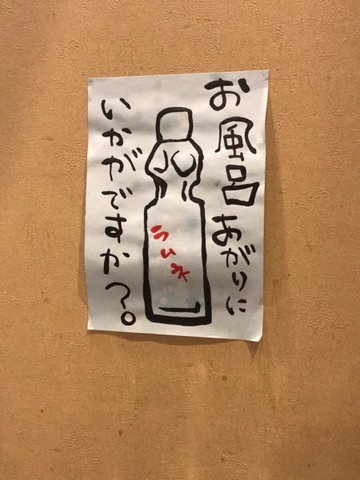 お風呂あがりに
いかがですか？。
ラムネ